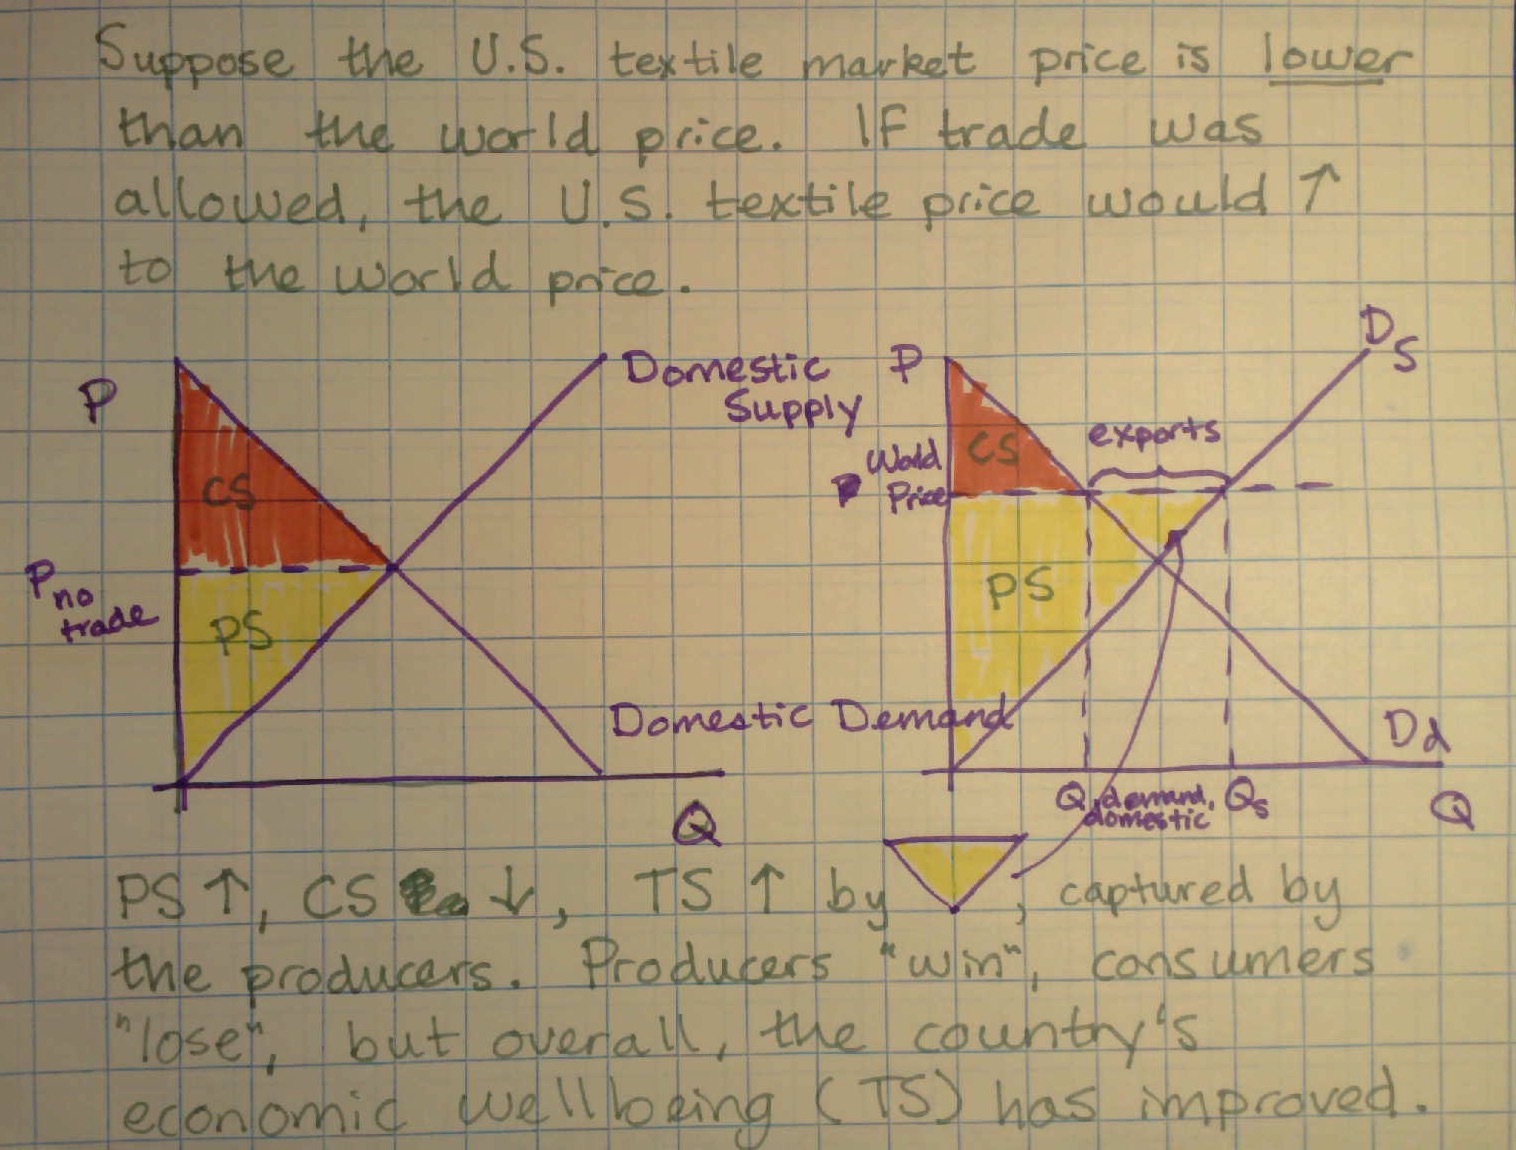 Suppose the U.S. textile market price is lower
than the world price. IF trade was
allowed, the U.S. textile price would ↑
to the world price.
P
Domestic
Supply
CS
P no
trade
PS
Domestic Demand
Q
P
Ds
exports
CS
World
P Price
PS
Dd
Q demand,
domestic
Qs
Q
PS ↑, CS ↓, TS ↑ by , captured by
the producers. Producers "win", consumers
"lose", but overall, the country's
economic wellbeing (TS) has improved.